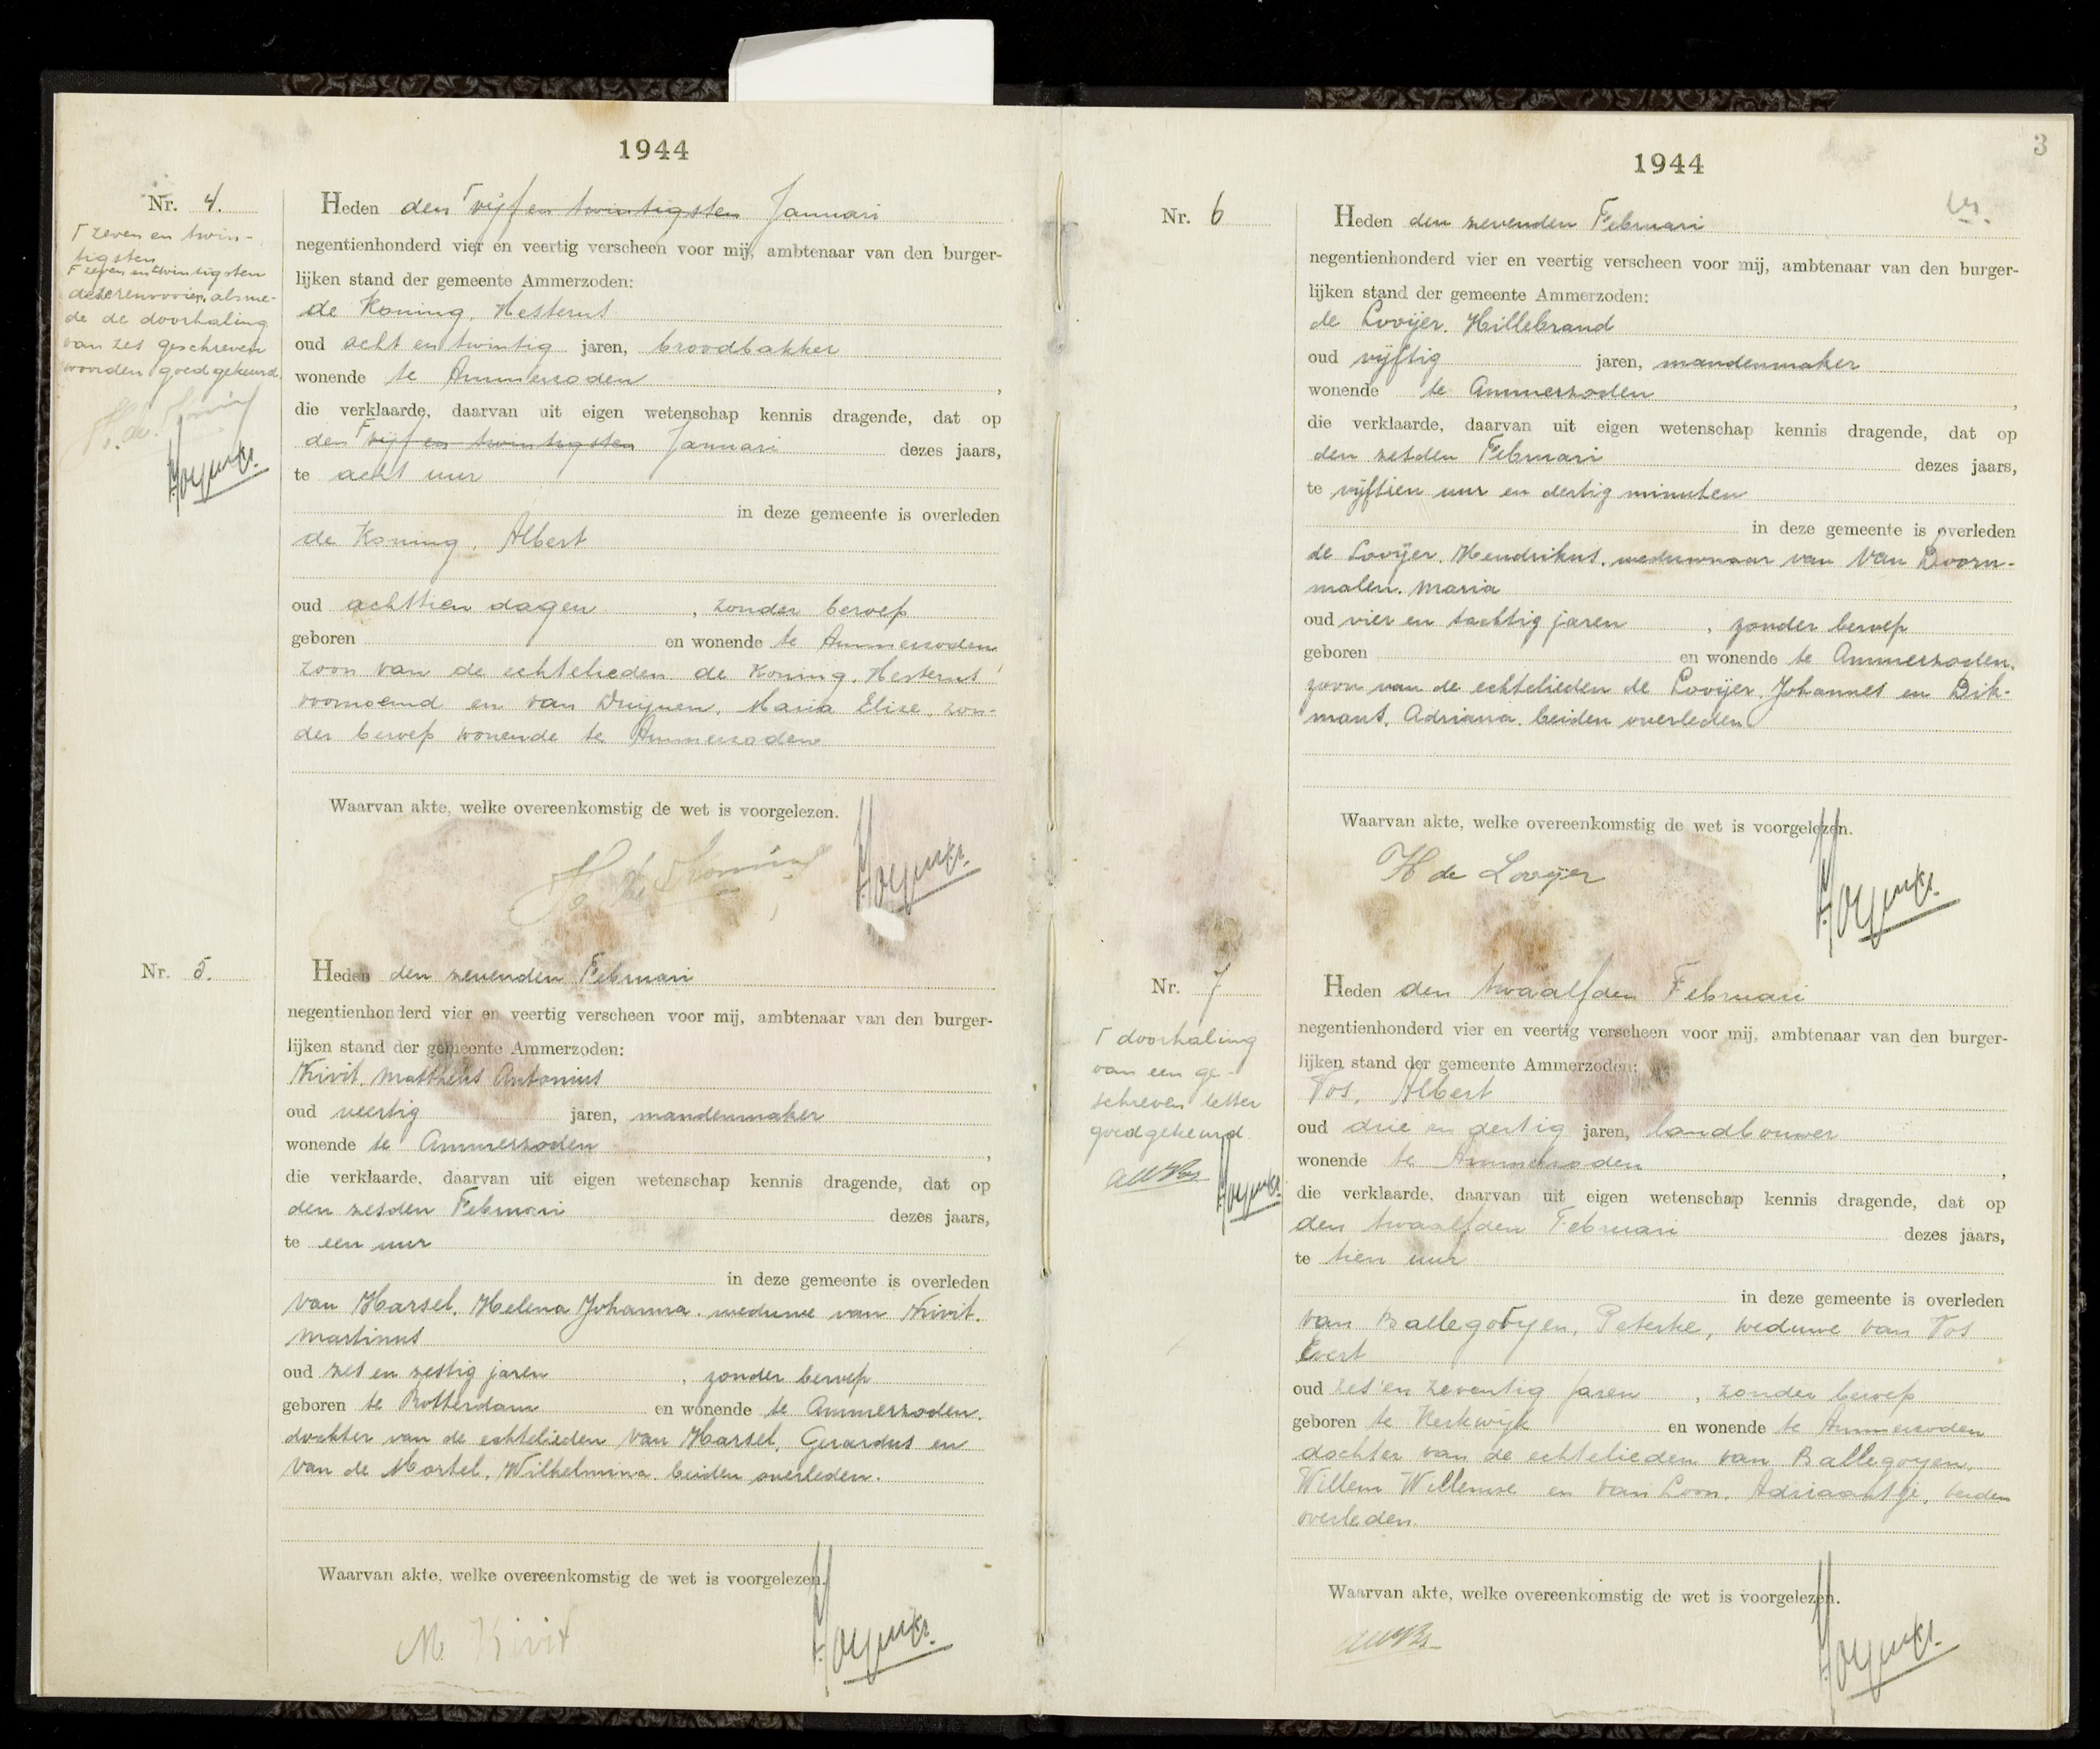 1944
Nr. 4.
Γ zeven en twin-
tigsten
F zeven en twintigsten
deze renvooien, alsme-
de de doorhaling
van zes geschreven
woorden goedgekeurd.
H. de Koning
Heden den Γ vijf en twintigsten Januari
negentienhonderd vier en veertig verscheen voor mij, ambtenaar van den burger-
lijken stand der gemeente Ammerzoden:
de Koning, Hesterus
oud acht en twintig jaren, broodbakker
wonende te Ammerzoden,
die verklaarde, daarvan uit eigen wetenschap kennis dragende, dat op
den F vijf en twintigsten Januari dezes jaars,
te acht uur
in deze gemeente is overleden
de Koning, Albert
oud achttien dagen, zonder beroep
geboren en wonende te Ammerzoden
zoon van de echtelieden de Koning, Hesterus
voornoemd en van Druijnen, Maria Elise, zon-
der beroep wonende te Ammerzoden
Waarvan akte, welke overeenkomstig de wet is voorgelezen.
H de Koning
Nr. 5.
Heden den zevenden Februari
negentienhonderd vier en veertig verscheen voor mij, ambtenaar van den burger-
lijken stand der gemeente Ammerzoden:
Kivit, Mattheus Antonius
oud veertig jaren, mandenmaker
wonende te Ammerzoden,
die verklaarde, daarvan uit eigen wetenschap kennis dragende, dat op
den zesden Februari dezes jaars,
te een uur
in deze gemeente is overleden
van Harsel, Helena Johanna, weduwe van Kivit,
Martinus
oud zes en zestig jaren, zonder beroep
geboren te Rotterdam en wonende te Ammerzoden,
dochter van de echtelieden van Harsel, Gerardus en
van de Mortel, Wilhelmina, beiden overleden.
Waarvan akte, welke overeenkomstig de wet is voorgelezen.
M. Kivit
3
1944
Nr. 6
Heden den zevenden Februari
negentienhonderd vier en veertig verscheen voor mij, ambtenaar van den burger-
lijken stand der gemeente Ammerzoden:
de Looijer, Hillebrand
oud vijftig jaren, mandenmaker
wonende te Ammerzoden,
die verklaarde, daarvan uit eigen wetenschap kennis dragende, dat op
den zesden Februari dezes jaars,
te vijftien uur en dertig minuten
in deze gemeente is overleden
de Looijer, Hendrikus, weduwnaar van Van Doorn-
malen, Maria
oud vier en tachtig jaren, zonder beroep
geboren en wonende te Ammerzoden,
zoon van de echtelieden de Looijer, Johannes en Bik-
mans, Adriana, beiden overleden
Waarvan akte, welke overeenkomstig de wet is voorgelezen.
H de Looijer
Nr. 7
Γ doorhaling
van een ge-
schreven letter
goedgekeurd
Heden den twaalfden Februari
negentienhonderd vier en veertig verscheen voor mij, ambtenaar van den burger-
lijken stand der gemeente Ammerzoden:
Vos, Albert
oud drie en dertig jaren, landbouwer
wonende te Ammerzoden,
die verklaarde, daarvan uit eigen wetenschap kennis dragende, dat op
den twaalfden Februari dezes jaars,
te tien uur
in deze gemeente is overleden
van BallegoΓyen, Peterke, weduwe van Vos
Evert
oud zes en zeventig jaren, zonder beroep
geboren te Kerkwijk en wonende te Ammerzoden
dochter van de echtelieden van Ballegoyen,
Willem Willemse en van Loon, Adriaantje, beiden
overleden.
Waarvan akte, welke overeenkomstig de wet is voorgelezen.